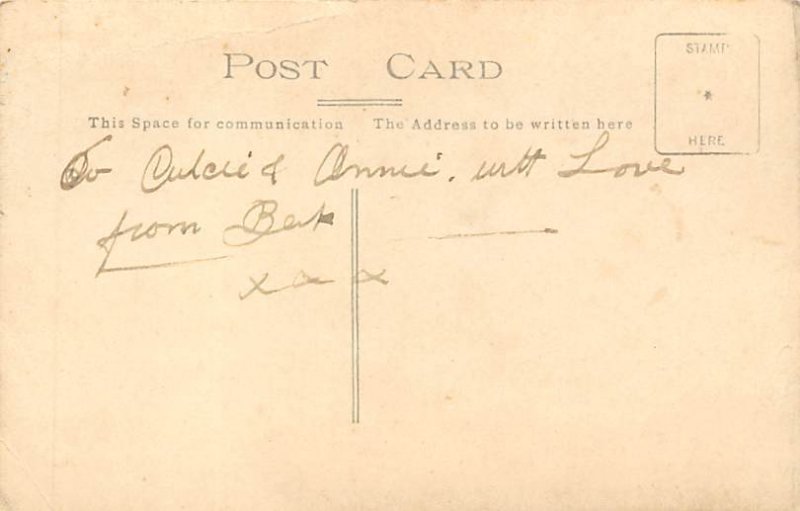 POST CARD
STAMP
*
HERE
This Space for communication
The Address to be written here
To & Annie. with Love
from Bert
x x x